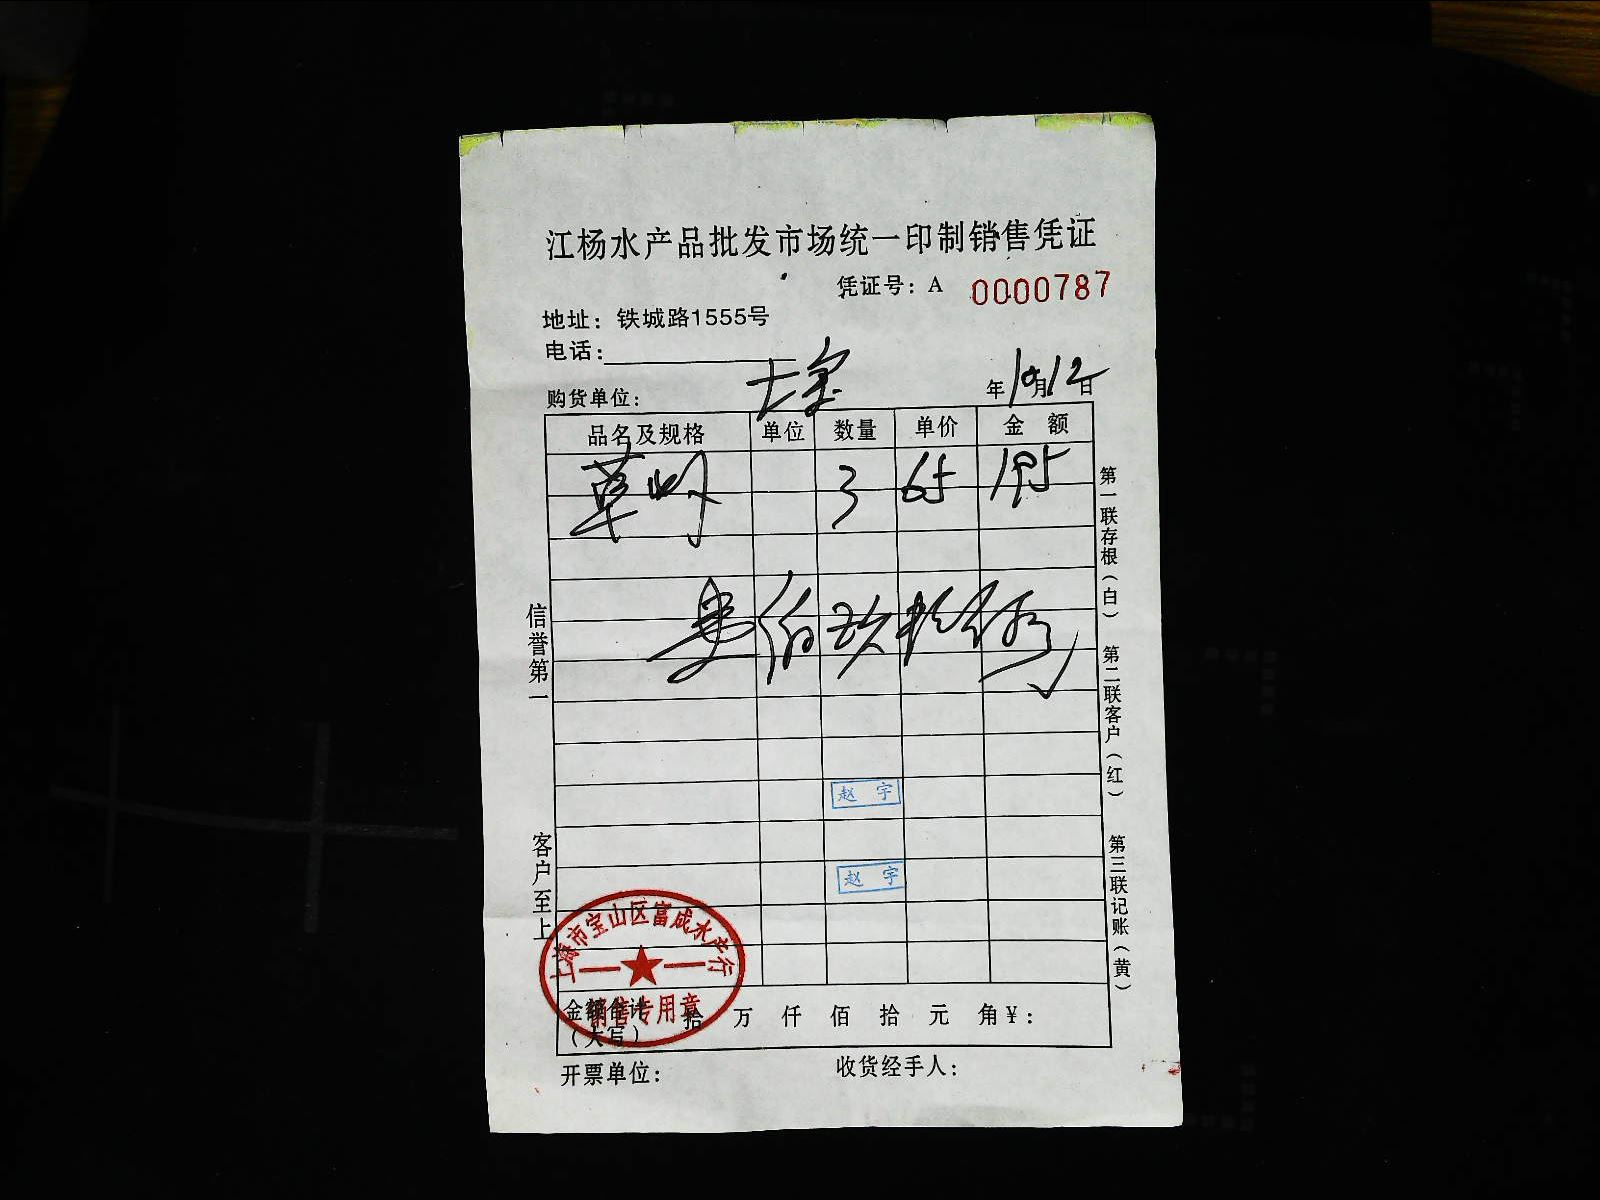 江杨水产品批发市场统一印制销售凭证
凭证号：A 0000787
地址：铁城路1555号
电话：
购货单位： 年10月12日
品名及规格 单位 数量 单价 金额
草虾 3 65 195
壹佰玖拾伍
赵宇
赵宇
信誉第一
客户至上
第一联存根（白）
第二联客户（红）
第三联记账（黄）
上海市宝山区富成水产行
销售专用章
金额合计（大写） 拾 万 仟 佰 拾 元 角 ￥：
开票单位： 收货经手人：